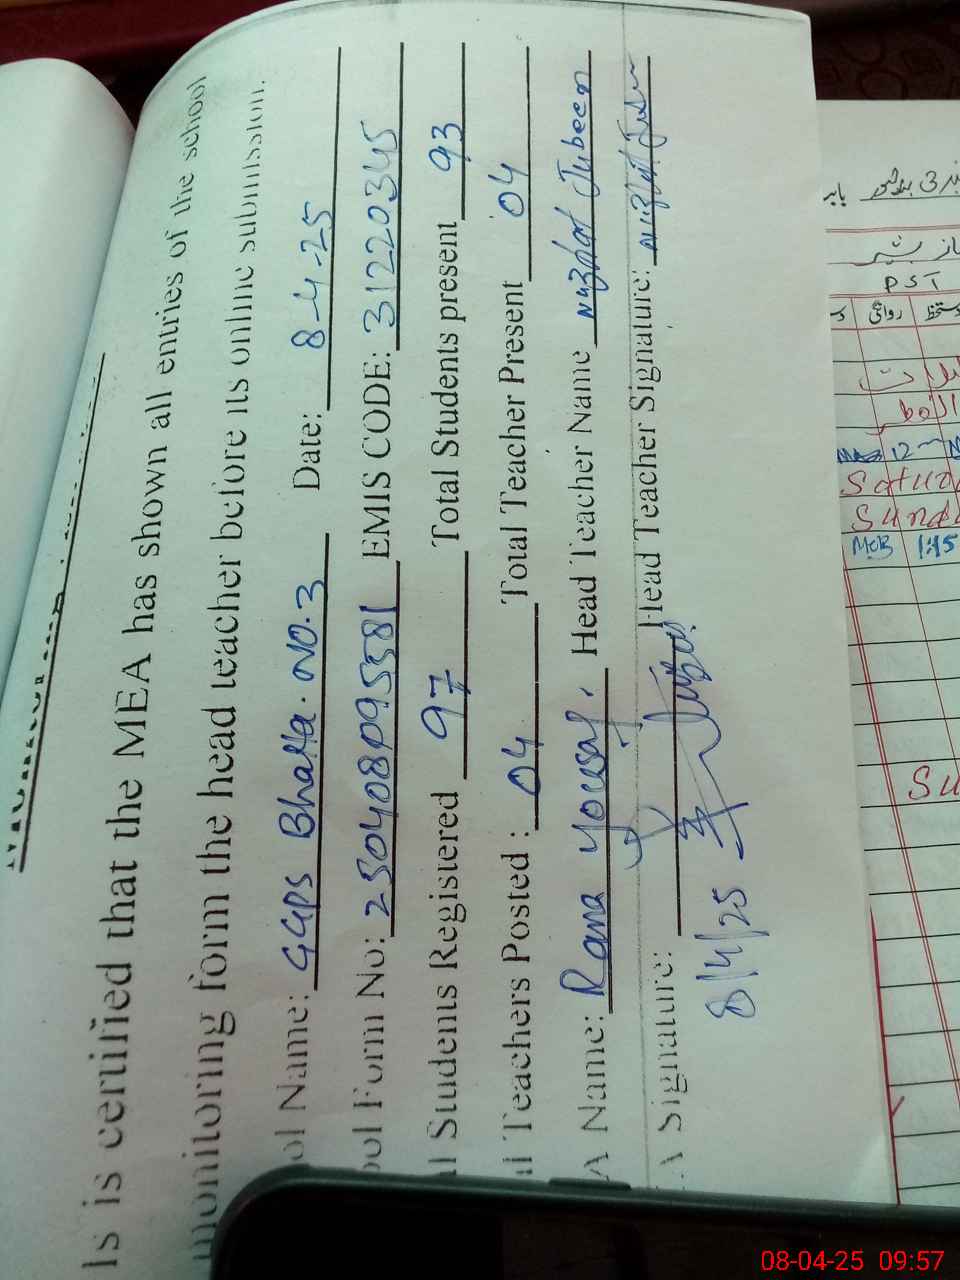 Is is certified that the MEA has shown all entries of the school
monitoring form the head teacher before its online submission.
ol Name: GGPS Bhatta.NO.3 Date: 8-4-25
ool Form No: 250408095581 EMIS CODE: 31220345
l Students Registered 97 Total Students present 93
l Teachers Posted : 04 Total Teacher Present 04
A Name: Rana Yousaf. Head Teacher Name Nuzhat Jubeen
A Signature: Head Teacher Signature:
8/4/25
PST
روانگی
12
Saturd
Sund
1:15
Su
08-04-25 09:57